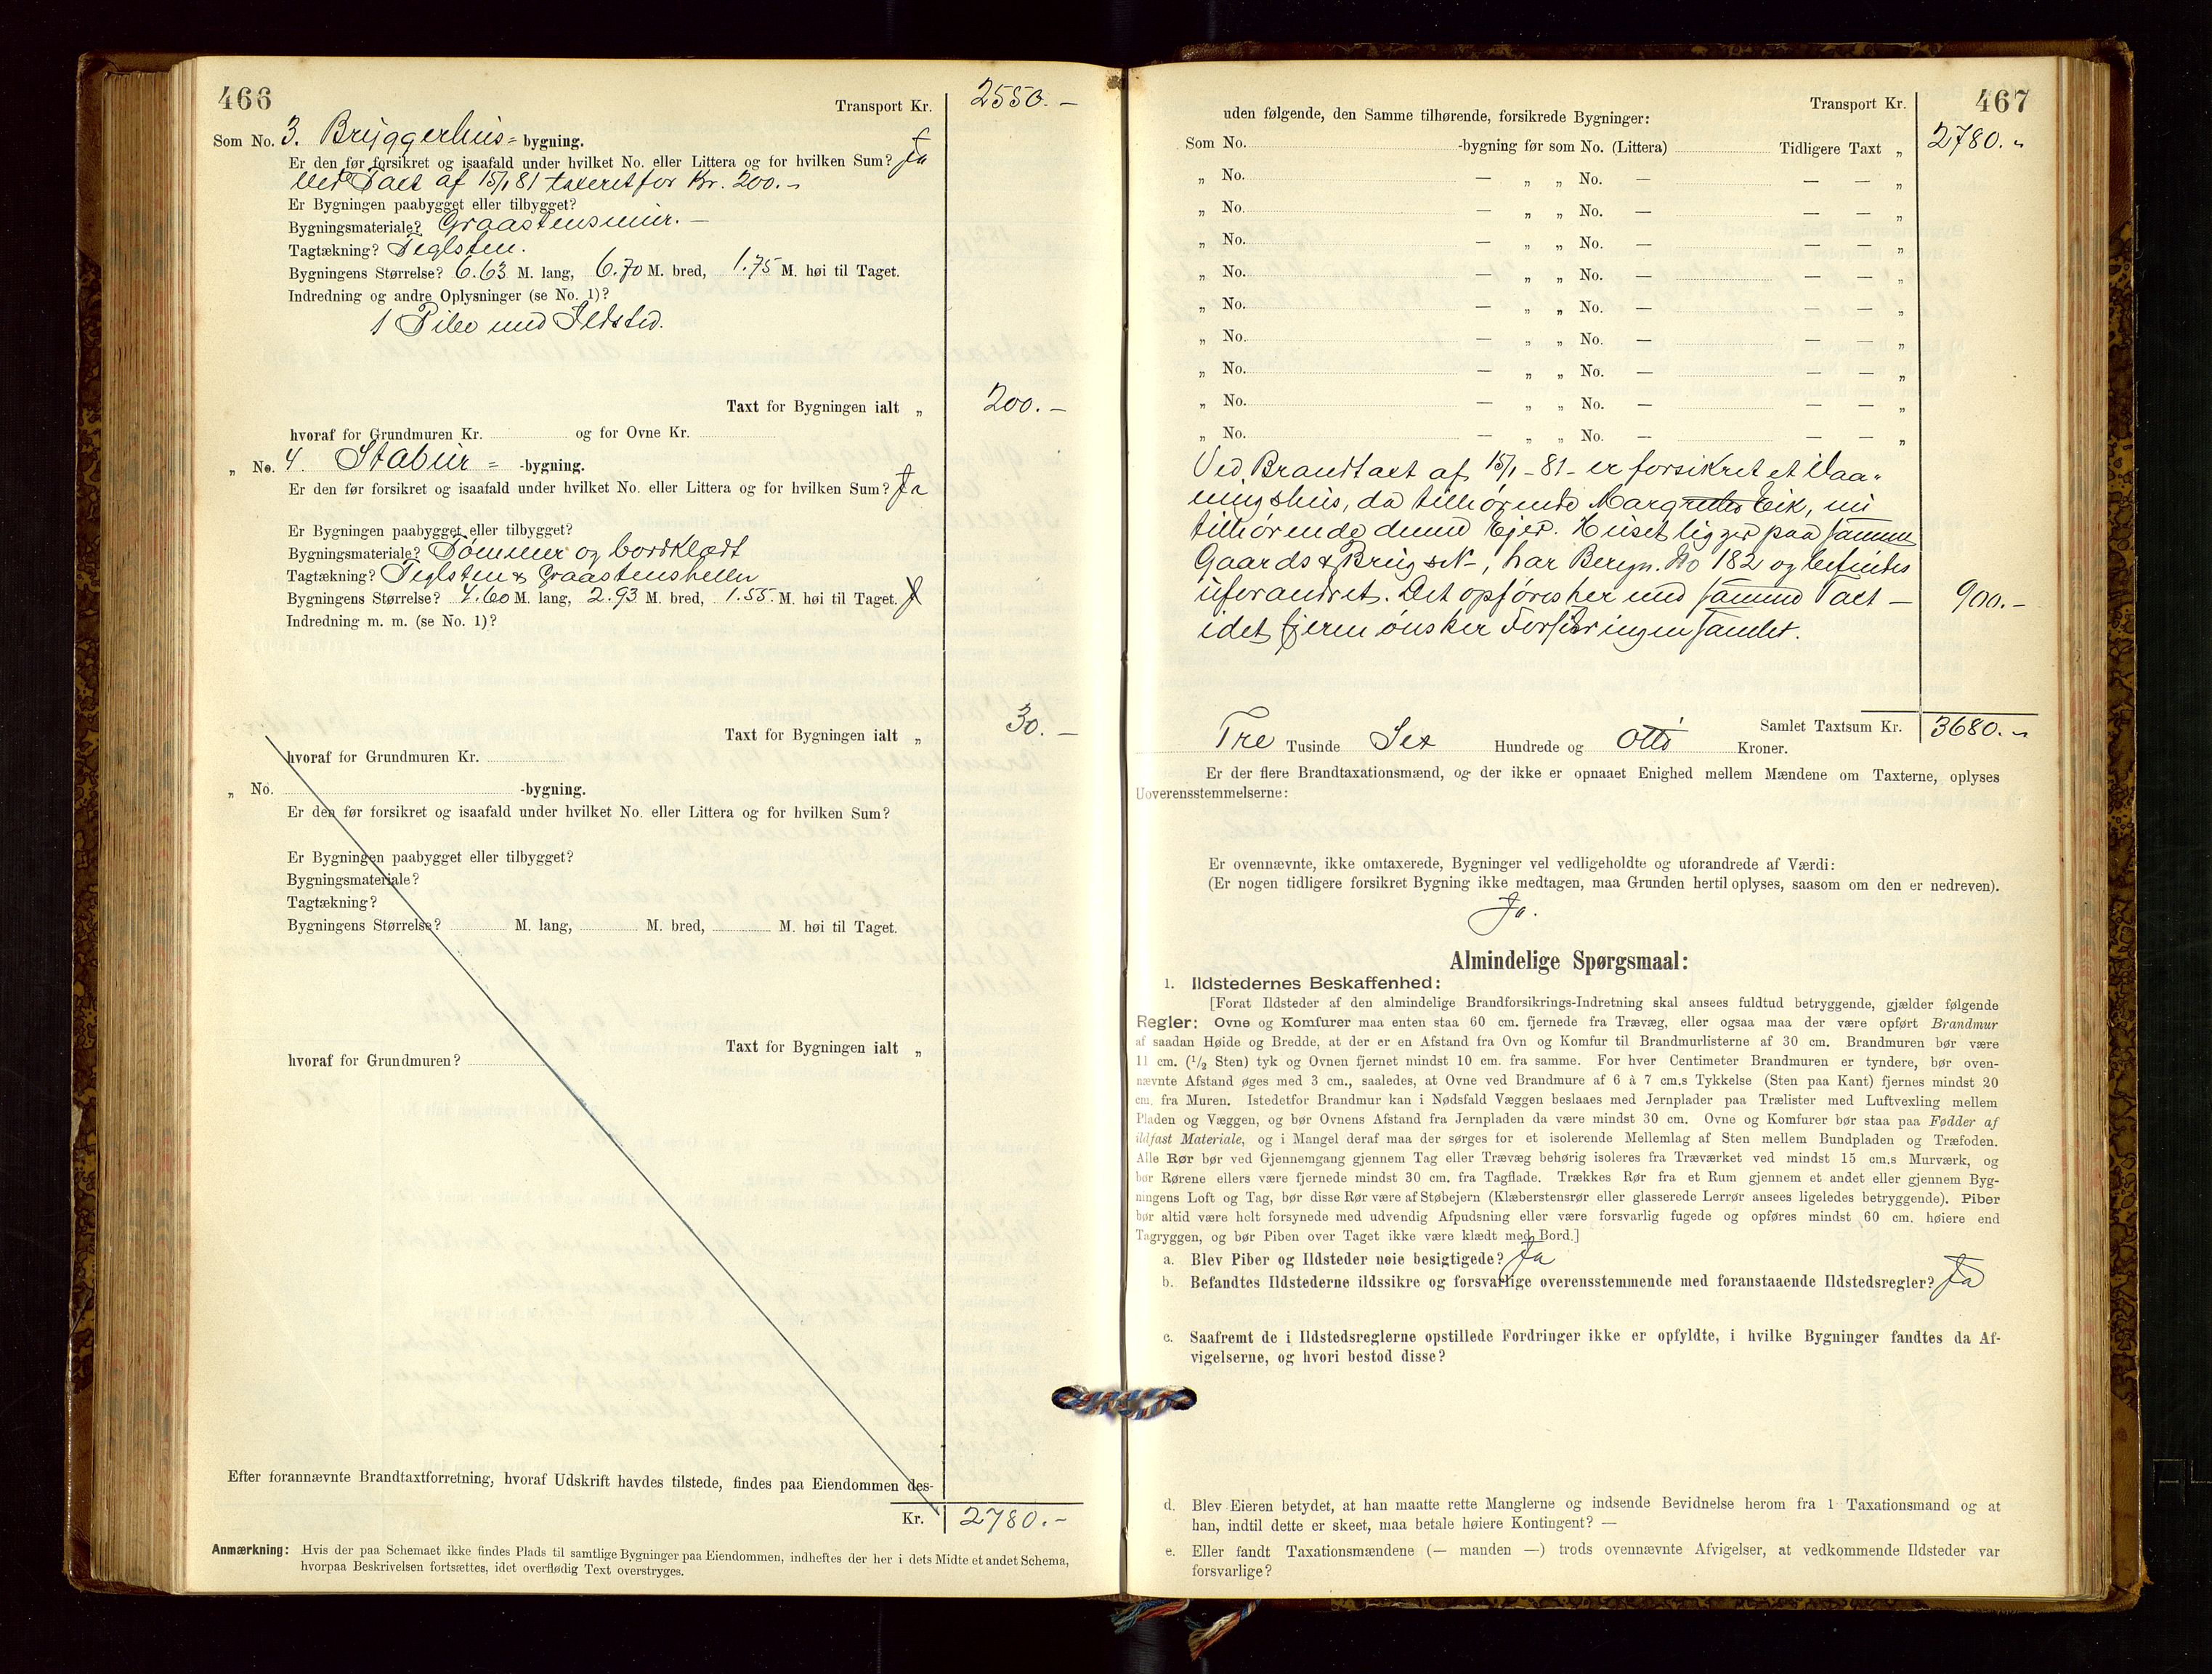 466
Transport Kr. 2550.-
Som No. 3. Bryggerhus= bygning.
Er den før forsikret og isaafald under hvilket No. eller Littera og for hvilken Sum? Ja
Ved Taxt af 15/1 81 taxeret for Kr. 200.-
Er Bygningen paabygget eller tilbygget?
Bygningsmateriale? Graastensmur. -
Tagtækning? Teglsten.
Bygningens Størrelse? 6.63 M. lang, 6.70 M. bred, 1.75 M. høi til Taget.
Indredning og andre Oplysninger (se No. 1)?
1 Pibe med Ildsted.
Taxt for Bygningen ialt „ 200.-
hvoraf for Grundmuren Kr. og for Ovne Kr.
„ No. 4. Stabur = -bygning.
Er den før forsikret og isaafald under hvilket No. eller Littera og for hvilken Sum? Ja
Er Bygningen paabygget eller tilbygget?
Bygningsmateriale? Tømmer og bordklædt
Tagtækning? Teglsten & Graastensheller
Bygningens Størrelse? 4.60 M. lang, 2.93 M. bred, 1.55 M. høi til Taget.
Indredning m. m. (se No. 1)?
Taxt for Bygningen ialt „ 30.-
hvoraf for Grundmuren Kr.
„ No. -bygning.
Er den før forsikret og isaafald under hvilket No. eller Littera og for hvilken Sum?
Er Bygningen paabygget eller tilbygget?
Bygningsmateriale?
Tagtækning?
Bygningens Størrelse? M. lang, M. bred, M. høi til Taget.
Taxt for Bygningen ialt „
hvoraf for Grundmuren?
Efter forannævnte Brandtaxtforretning, hvoraf Udskrift havdes tilstede, findes paa Eiendommen des-
Kr. 2780.-
Anmærkning: Hvis der paa Schemaet ikke findes Plads til samtlige Bygninger paa Eiendommen, indheftes der her i dets Midte et andet Schema,
hvorpaa Beskrivelsen fortsættes, idet overflødig Text overstryges.
467
Transport Kr. 2780.-
uden følgende, den Samme tilhørende, forsikrede Bygninger:
Som No. -bygning før som No. (Littera) Tidligere Taxt „
„ No. — „ „ No. — — — „
„ No. — „ „ No. — — — „
„ No. — „ „ No. — — — „
„ No. — „ „ No. — — — „
„ No. — „ „ No. — — — „
„ No. — „ „ No. — — — „
„ No. — „ „ No. — — — „
„ No. — „ „ No. — — — „
„ No. — „ „ No. — — — „
Ved Brandtaxt af 15/1 - 81 - er forsikret et Vaa-
ningshus, da tilhørende Margrethe Eik, nu
tilhørende denne Ejer. Huset ligger paa samme
Gaards & Brugs N-, har Beregn. No 182 og befindes
uforandret. Det opføres her med samme Taxt - 900.-
idet Ejeren ønsker Forsikringen samlet.
Samlet Taxtsum Kr. 3680.-
Tre Tusinde Sex Hundrede og Otti Kroner.
Er der flere Brandtaxationsmænd, og der ikke er opnaaet Enighed mellem Mændene om Taxterne, oplyses
Uoverensstemmelserne:
Er ovennævnte, ikke omtaxerede, Bygninger vel vedligeholdte og uforandrede af Værdi:
(Er nogen tidligere forsikret Bygning ikke medtagen, maa Grunden hertil oplyses, saasom om den er nedreven).
Ja.
Almindelige Spørgsmaal:
1. Ildstedernes Beskaffenhed:
[Forat Ildsteder af den almindelige Brandforsikrings-Indretning skal ansees fuldtud betryggende, gjælder følgende
Regler: Ovne og Komfurer maa enten staa 60 cm. fjernede fra Trævæg, eller ogsaa maa der være opført Brandmur
af saadan Høide og Bredde, at der er en Afstand fra Ovn og Komfur til Brandmurlisterne af 30 cm. Brandmuren bør være
11 cm. (1/2 Sten) tyk og Ovnen fjernet mindst 10 cm. fra samme. For hver Centimeter Brandmuren er tyndere, bør oven-
nævnte Afstand øges med 3 cm., saaledes, at Ovne ved Brandmure af 6 à 7 cm.s Tykkelse (Sten paa Kant) fjernes mindst 20
cm. fra Muren. Istedetfor Brandmur kan i Nødsfald Væggen beslaaes med Jernplader paa Trælister med Luftvexling mellem
Pladen og Væggen, og bør Ovnens Afstand fra Jernpladen da være mindst 30 cm. Ovne og Komfurer bør staa paa Fødder af
ildfast Materiale, og i Mangel deraf maa der sørges for et isolerende Mellemlag af Sten mellem Bundpladen og Træfoden.
Alle Rør bør ved Gjennemgang gjennem Tag eller Trævæg behørig isoleres fra Træværket ved mindst 15 cm.s Murværk, og
bør Rørene ellers være fjernede mindst 30 cm. fra Tagflade. Trækkes Rør fra et Rum gjennem et andet eller gjennem Byg-
ningens Loft og Tag, bør disse Rør være af Støbejern (Klæberstensrør eller glasserede Lerrør ansees ligeledes betryggende). Piber
bør altid være helt forsynede med udvendig Afpudsning eller være forsvarlig fugede og opføres mindst 60 cm. høiere end
Tagryggen, og bør Piben over Taget ikke være klædt med Bord.]
a. Blev Piber og Ildsteder nøie besigtigede? Ja
b. Befandtes Ildstederne ildssikre og forsvarlige overensstemmende med foranstaaende Ildstedsregler? Ja
c. Saafremt de i Ildstedsreglerne opstillede Fordringer ikke er opfyldte, i hvilke Bygninger fandtes da Af-
vigelserne, og hvori bestod disse?
d. Blev Eieren betydet, at han maatte rette Manglerne og indsende Bevidnelse herom fra 1 Taxationsmand og at
han, indtil dette er skeet, maa betale høiere Kontingent? —
e. Eller fandt Taxationsmændene (— manden —) trods ovennævnte Afvigelser, at vedkommende Ildsteder var
forsvarlige?